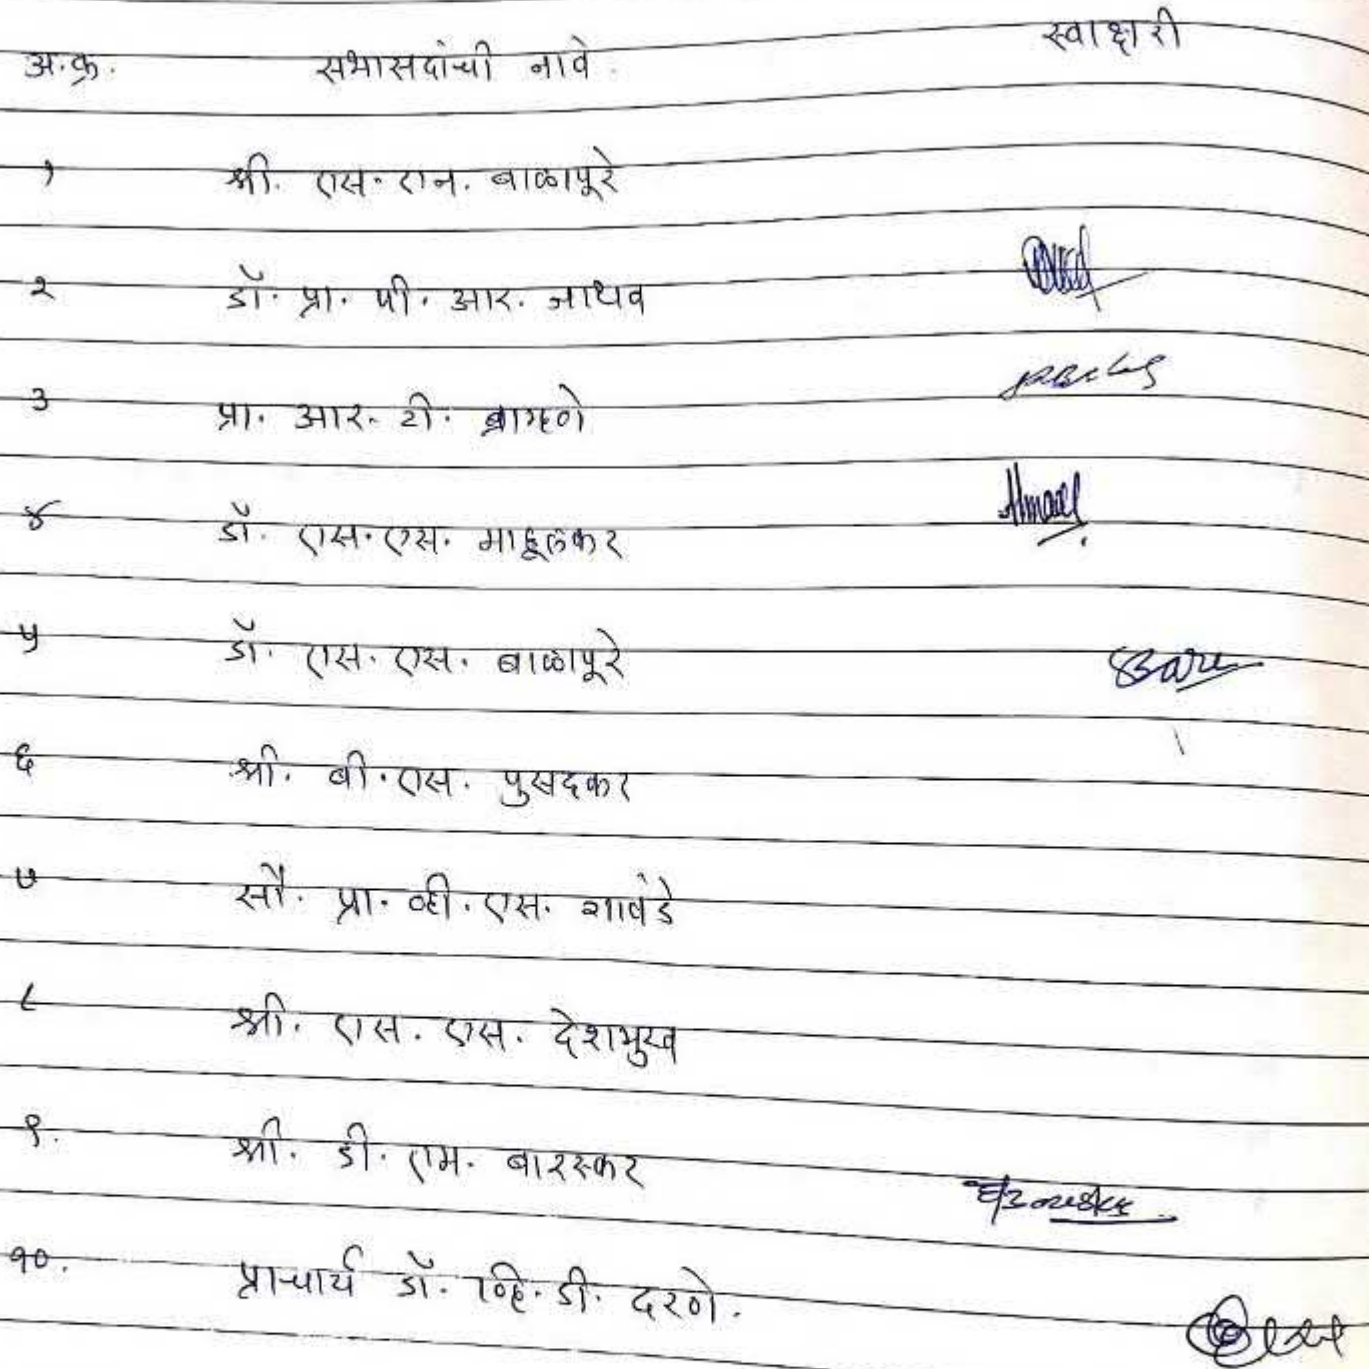 अ.क्र. सभासदांची नावे. स्वाक्षरी
१ श्री. एस. एन. बाळापूरे
२ डॉ. प्रा. पी. आर. जाधव
३ प्रा. आर. टी. ब्राम्हणे
४ डॉ. एस. एस. माहूलकर
५ डॉ. एस. एस. बाळापूरे
६ श्री. बी. एस. पुसदकर
७ सौ. प्रा. व्ही. एस.
८ श्री. एस. एस. देशमुख
९. श्री. डी. एम. बारस्कर
१०. प्राचार्य डॉ. व्हि. डी. दरणे.